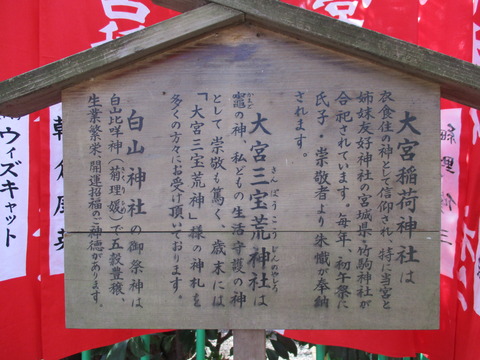 大宮稲荷神社は
衣食住の神として信仰され、特に当宮と
姉妹友好神社の宮城県・竹駒神社が
合祀されています。毎年、初午祭に
氏子・崇敬者より朱幟が奉納
されます。
大宮三宝荒神社は
さんぼうこうじんのやしろ
竈の神、私どもの生活守護の神
かまど
として崇敬も篤く、歳末には
「大宮三宝荒神」様の神札を
多くの方々にお受け頂いております。
白山神社の御祭神は
白山比咩神（菊理媛）で五穀豊穣、
生業繁栄・開運招福のご神徳があります。
ウィズキャット
朝倉